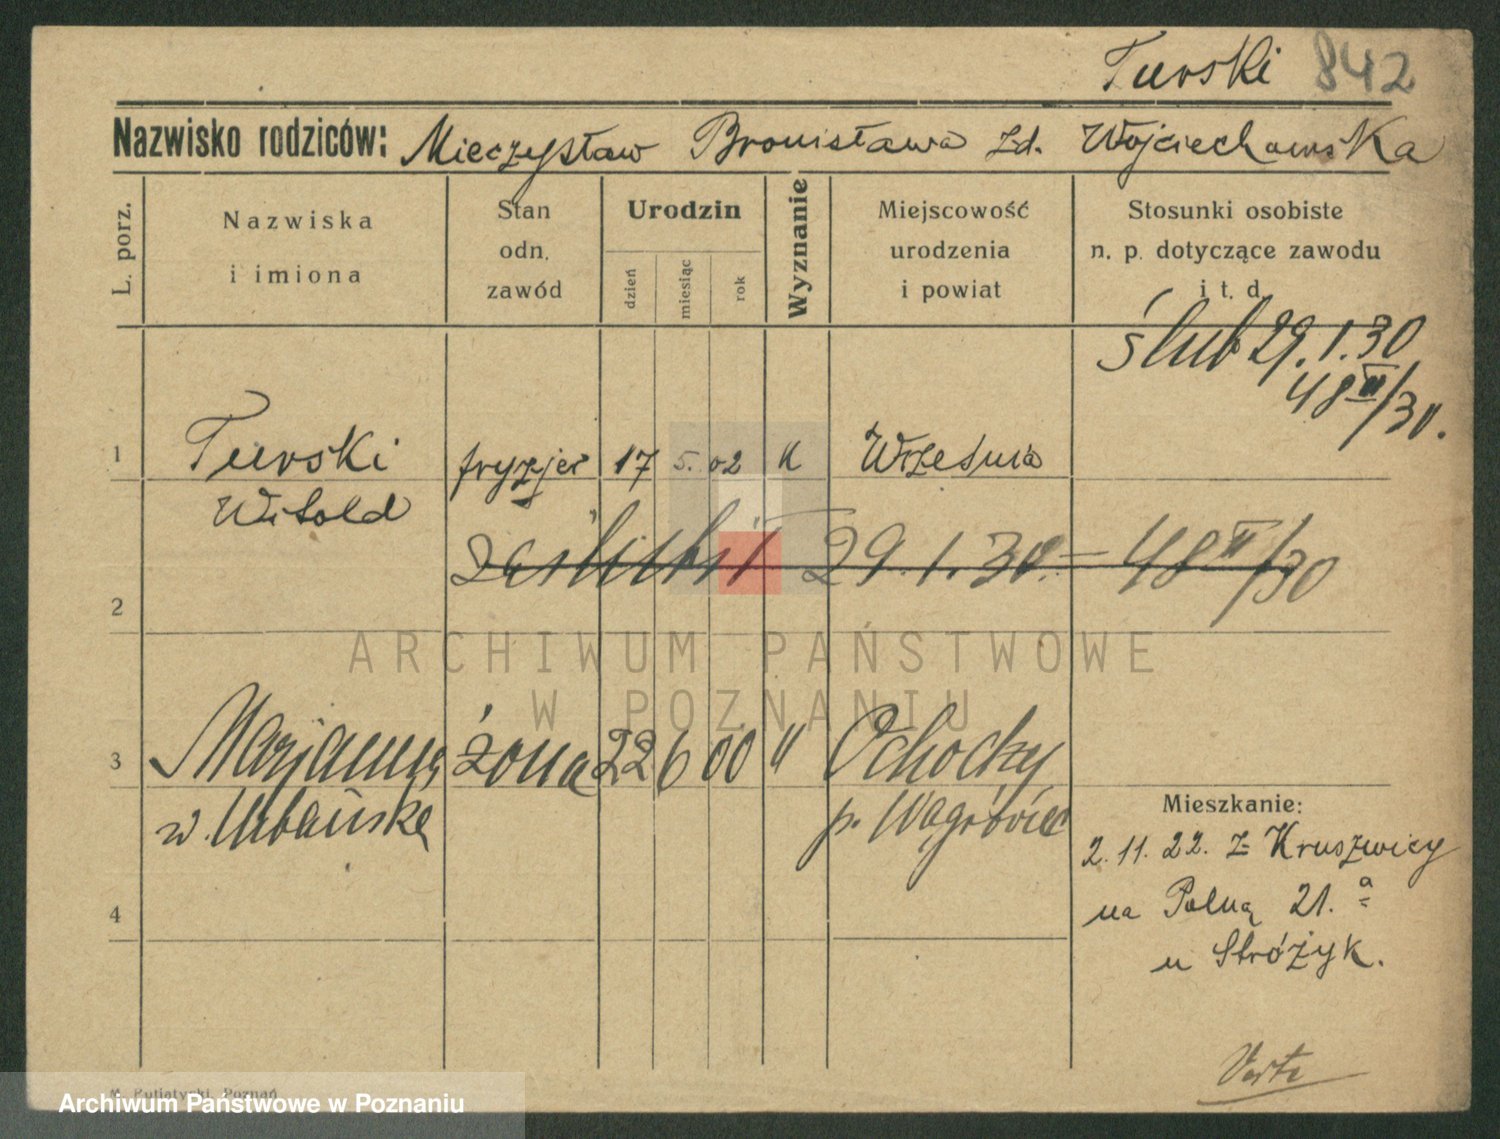 Turski 842
Nazwisko rodziców: Mieczysław Bronisława zd. Wojciechowska
L. porz.
Nazwiska
i imiona
Stan
odn.
zawód
Urodzin
dzień
miesiąc
rok
Wyznanie
Miejscowość
urodzenia
i powiat
Stosunki osobiste
n. p. dotyczące zawodu
i t. d.
ślub 29.1.30
48 II/30.
1 Turski fryzjer 17 5. 02 k Września
Witold
zaślubił 29.1.30. — 48 II/30
2
3 Marjanna żona 22 6 00 " Ochocky
w. Urbańska p. Wągrówiec
Mieszkanie:
2.11.22. z Kruszwicy
na Polną 21.a
u Stróżyk.
4
Verte
M. Putiatycki, Poznań
ARCHIWUM PAŃSTWOWE
W POZNANIU
Archiwum Państwowe w Poznaniu